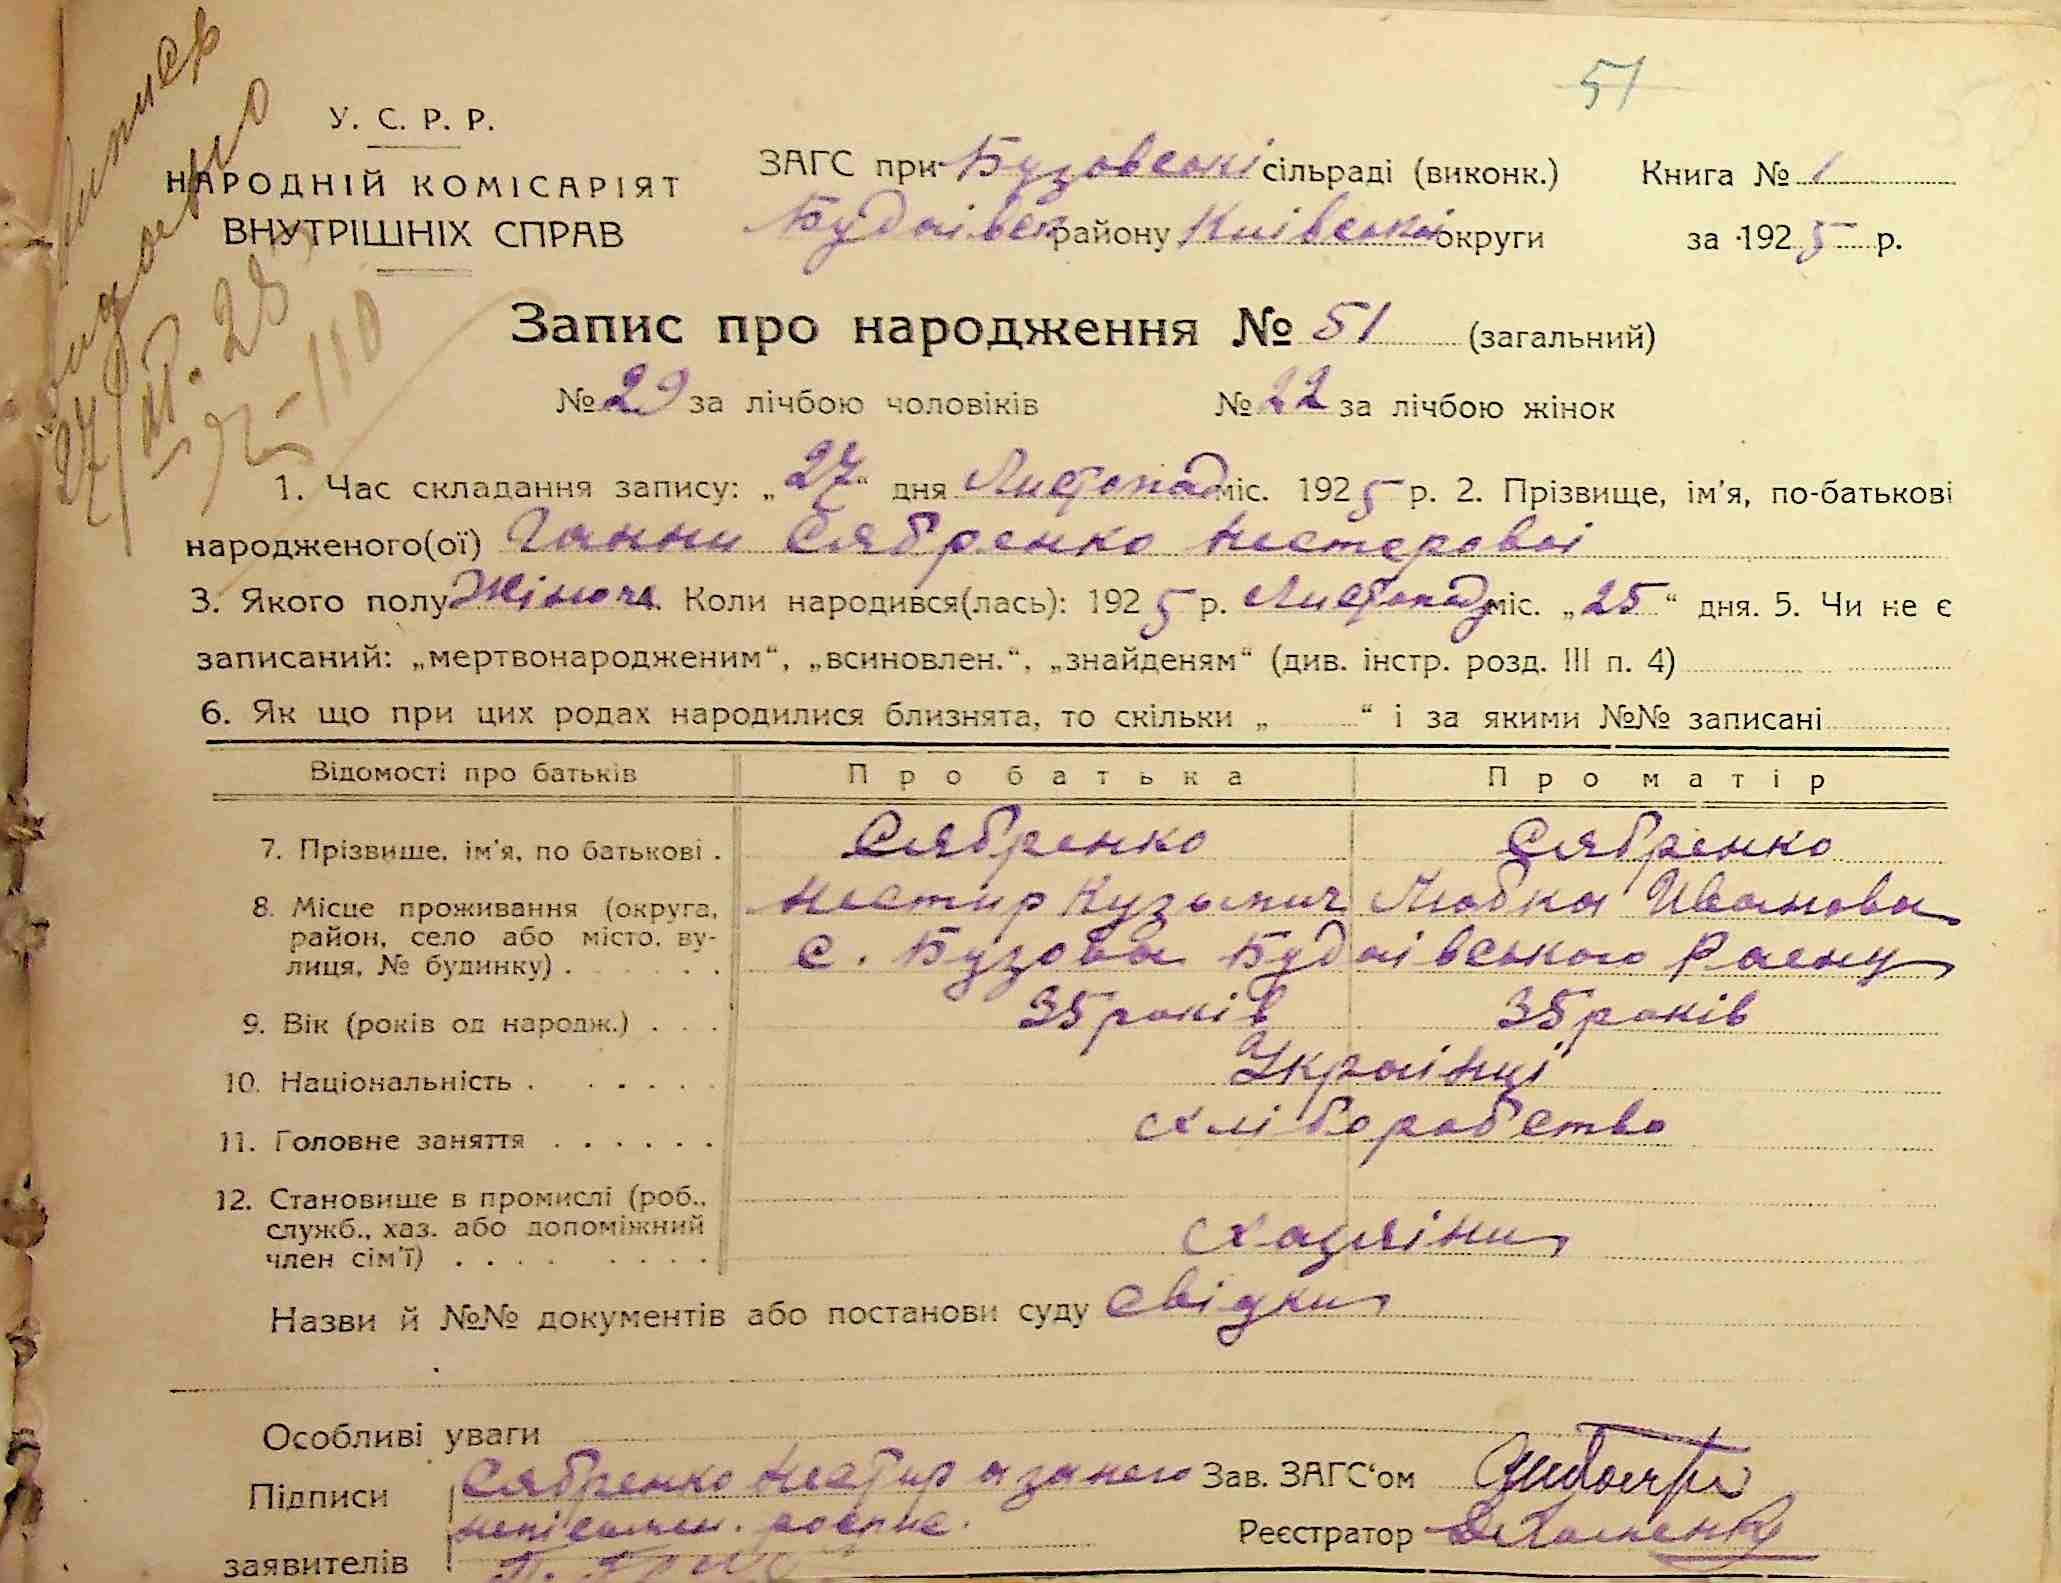 51
У. С. Р. Р.
НАРОДНІЙ КОМІСАРІЯТ
ВНУТРІШНІХ СПРАВ
ЗАГС при Бузовські сільраді (виконк.) Книга № 1
Будаівськ району Киівськоі округи за 1925 р.
Запис про народження № 51 (загальний)
№ 29 за лічбою чоловіків № 22 за лічбою жінок
1. Час складання запису: „27“ дня Листопад міс. 1925 р. 2. Прізвище, ім’я, по-батькові
народженого(ої) Ганни Сябренко Нестеровоі
3. Якого полу Жіноч 4. Коли народився(лась): 1925 р. Листопад міс. „25“ дня. 5. Чи не є
записаний: „мертвонародженим“, „всиновлен.“, „знайденям“ (див. інстр. розд. III п. 4)
6. Як що при цих родах народилися близнята, то скільки „ “ і за якими №№ записані
Відомості про батьків Про батька Про матір
7. Прізвище, ім’я, по батькові . Сябренко Сябренко
8. Місце проживання (округа, Нестир Кузьмич Любка Иванова
район, село або місто, ву- с. Бузова Будаівського Раену
лиця, № будинку) .
9. Вік (років од народж.) . . . 35 років 35 років
10. Національність . . . . . . Украінці
11. Головне заняття . . . . . . хліборобство
12. Становище в промислі (роб.,
служб., хаз. або допоміжний хазяіни
член сім’ї) . . . .
Назви й №№ документів або постанови суду Свідки
Особливі уваги
Підписи Сябренко Нестир а за него Зав. ЗАГС‘ом
неписьмен. роспис. Реєстратор
заявителів